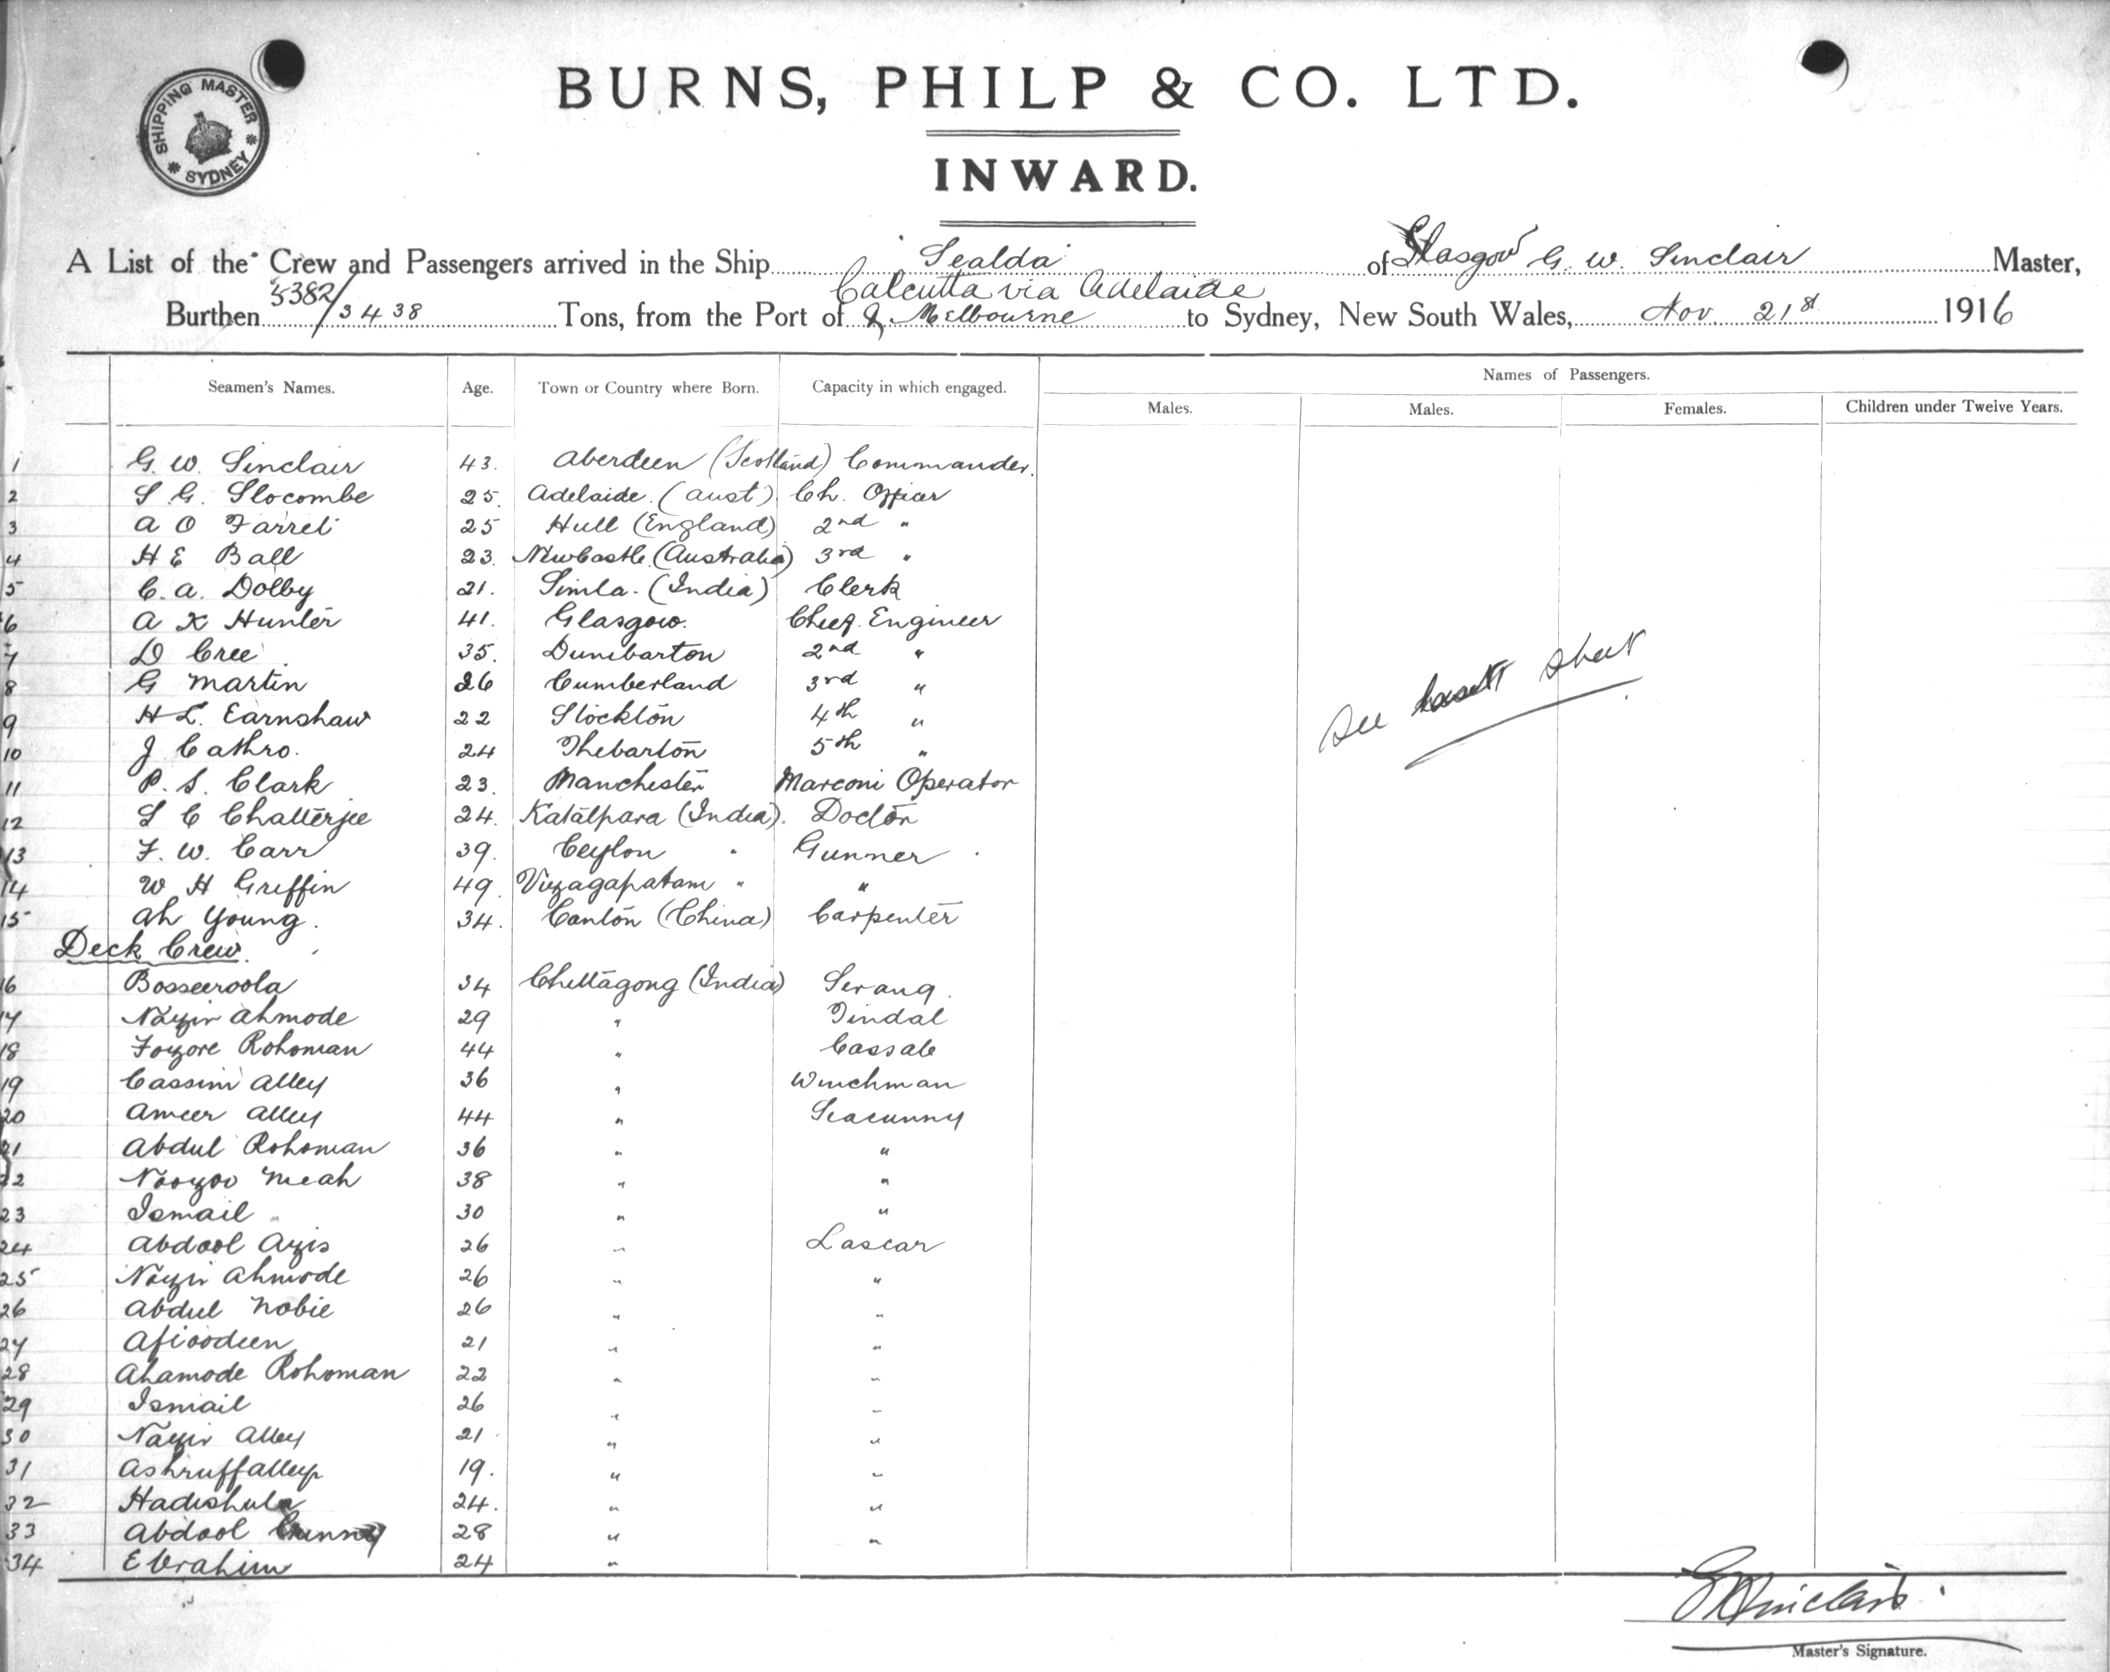 SHIPPING MASTER
SYDNEY
BURNS, PHILP & CO. LTD.
INWARD.
A List of the Crew and Passengers arrived in the Ship "Sealda" of Glasgow G. W. Sinclair Master,
Burthen 5382/3438 Tons, from the Port of Calcutta via Adelaide & Melbourne to Sydney, New South Wales, Nov. 21st 1916
Seamen's Names. Age. Town or Country where Born. Capacity in which engaged. Names of Passengers.
Males. Males. Females. Children under Twelve Years.
1 G. W. Sinclair 43. Aberdeen (Scotland) Commander.
2 S G. Slocombe 25. Adelaide. (Aust). Ch. Officer
3 A O Farrell 25 Hull (England) 2nd "
4 H E Ball 23. NewCastle (Australia) 3rd "
5 C. A. Dolby 21. Simla. (India) Clerk
6 A K Hunter 41. Glasgow. Chief. Engineer
7 D Cree 35. Dumbarton 2nd "
8 G Martin 26 Cumberland 3rd "
9 H L. Earnshaw 22 Stockton 4th "
10 J Cathro. 24 Thebarton 5th "
11 P. S. Clark 23. Manchester Marconi Operator
12 S C Chatterjee 24. Katalpara (India). Doctor
13 F. W. Carr 39. Ceylon " Gunner
14 W H Griffin 49 Vizagapatam " "
15 Ah Young. 34. Canton (China) Carpenter
See last sheet
Deck Crew.
16 Bosseeroola 34 Chittagong (India) Serang.
17 Nazir Ahmode 29 " Tindal
18 Fozore Rohoman 44 " Cassab
19 Cassim Alley 36 " Winchman
20 Ameer Alley 44 " Seacunny
21 Abdul Rohoman 36 " "
22 Noozoo Meah 38 " "
23 Ismail 30 " "
24 Abdool Azis 26 " Lascar
25 Nazir Ahmode 26 " "
26 Abdul Nobie 26 " "
27 Afioodeen 21 " "
28 Ahamode Rohoman 22 " "
29 Ismail 26 " "
30 Nazir Alley 21 " "
31 Ashruffalley 19. " "
32 Hadishula 24. " "
33 Abdool Gunny 28 " "
34 Ebrahim 24 " "
G W Sinclair.
Master's Signature.